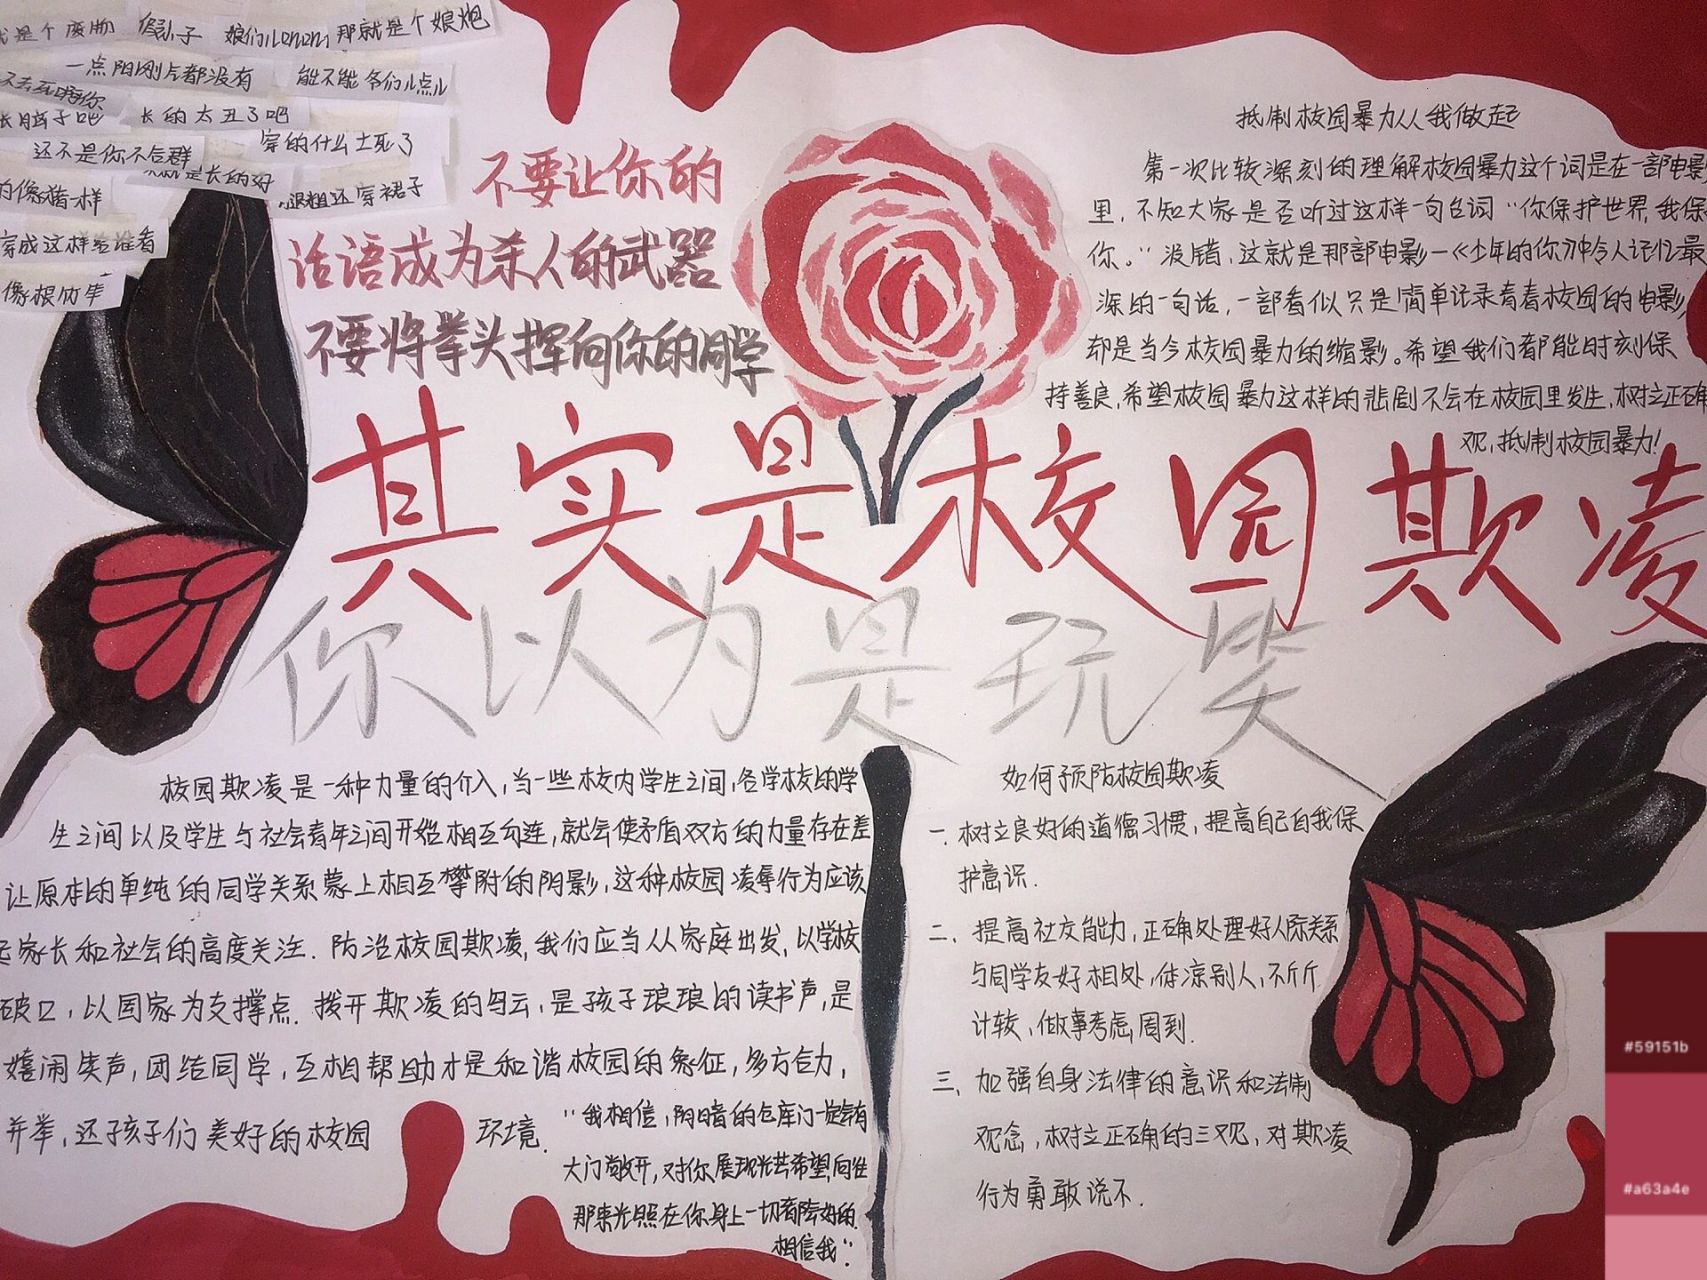 是个废物
娘们儿
那就是个娘炮
一点阳刚气都没有
能不能爷们儿点儿
长的太丑了吧
还不是你不合群
穿的什么土死了
的像猪一样
腿粗还穿裙子
穿成这样给谁看
像根竹竿
不要让你的
话语成为杀人的武器
不要将拳头挥向你的同学
抵制校园暴力从我做起
第一次比较深刻的理解校园暴力这个词是在一部电影
里，不知大家是否听过这样一句台词“你保护世界，我保
你。”没错，这就是那部电影一《少年的你》中令人记忆最
深的一句话，一部看似只是简单记录青春校园的电影，
却是当今校园暴力的缩影。希望我们都能时刻保
持善良，希望校园暴力这样的悲剧不会在校园里发生，树立正确
观，抵制校园暴力！
其实是校园欺凌
你以为是玩笑
校园欺凌是一种力量的介入，当一些校内学生之间，各学校的学
生之间以及学生与社会青年之间开始相互勾连，就会使矛盾双方的力量存在差
让原本的单纯的同学关系蒙上相互攀附的阴影，这种校园凌辱行为应该
家长和社会的高度关注．防治校园欺凌，我们应当从家庭出发，以学校
破口，以国家为支撑点．拨开欺凌的乌云，是孩子琅琅的读书声，是
嬉闹笑声，团结同学，互相帮助才是和谐校园的象征，多方合力，
并举，还孩子们美好的校园 环境．
“我相信，阴暗的仓库门一定会有
大门敞开，对你展现光芒希望，向往
那束光照在你身上一切都会好的
相信我”．
如何预防校园欺凌
一．树立良好的道德习惯，提高自己自我保
护意识．
二、提高社交能力，正确处理好人际关系
与同学友好相处，体凉别人，不斤斤
计较，做事考虑周到．
三、加强自身法律的意识和法制
观念，树立正确的三观，对欺凌
行为勇敢说不．
#59151b
#a63a4e